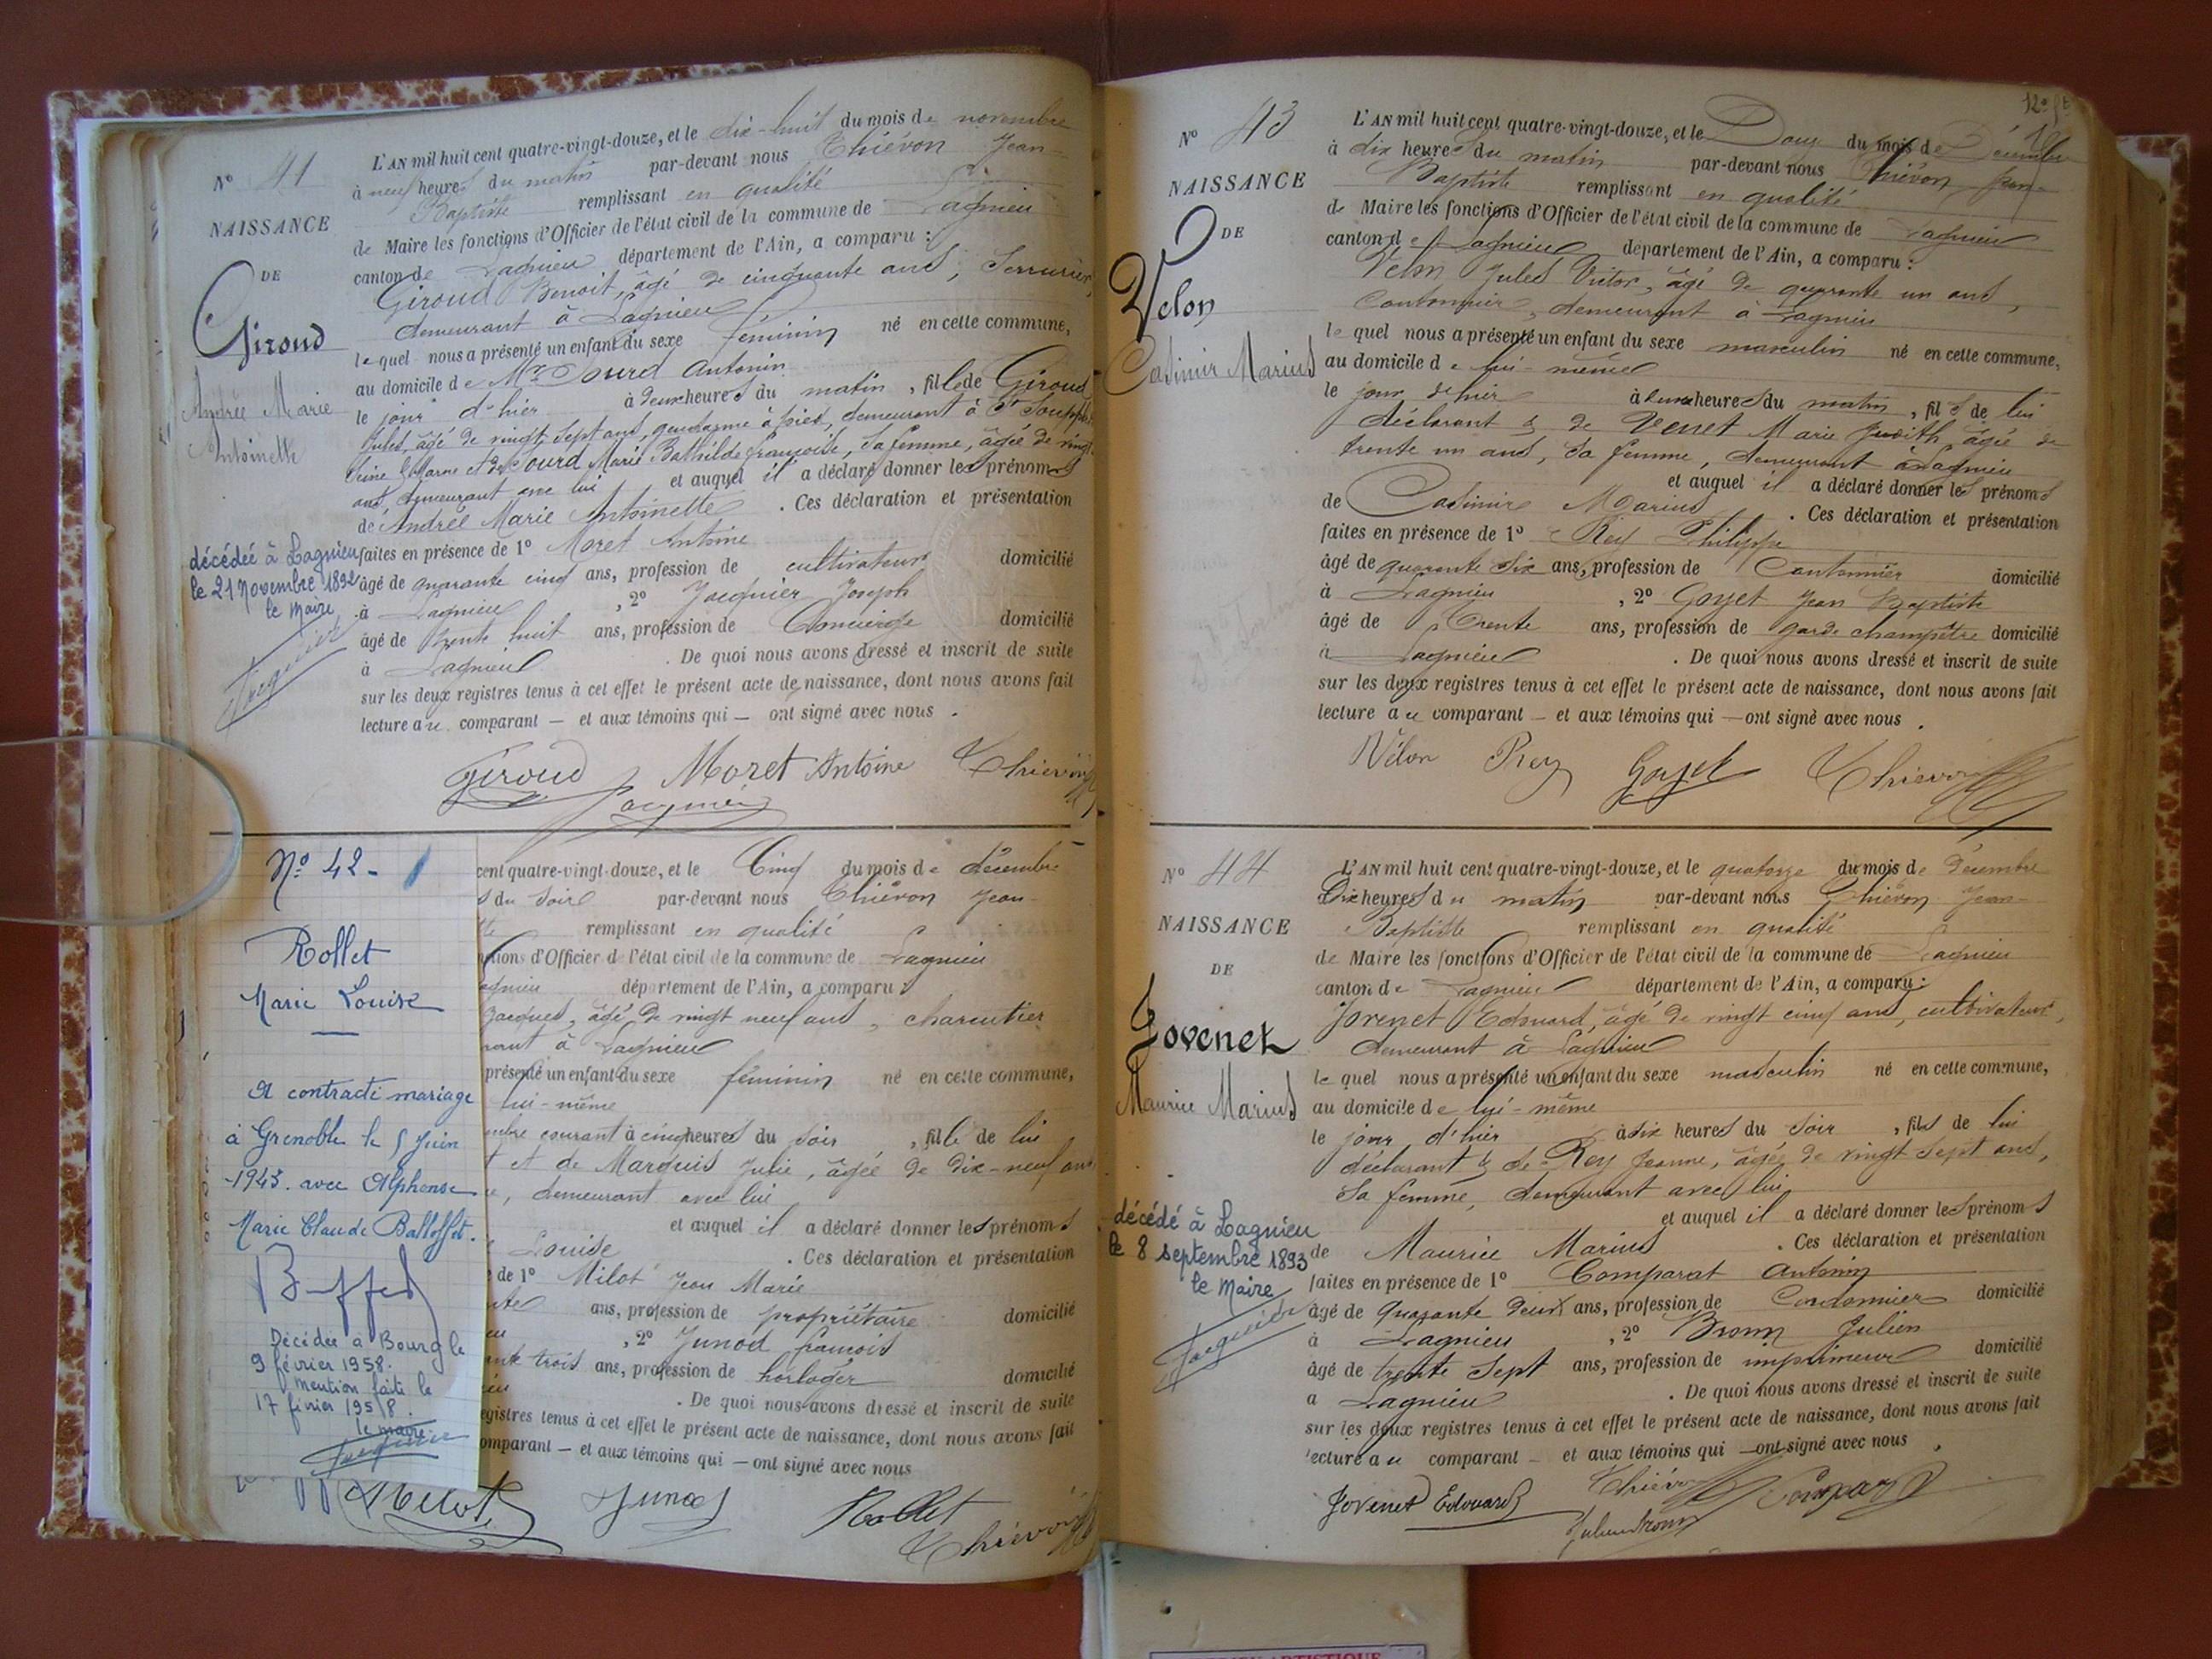 N° 41
NAISSANCE
DE
Giroud
Andrée Marie
Antoinette
décédée à Lagnieu
le 21 Novembre 1892
le Maire
L'AN mil huit cent quatre-vingt-douze, et le dix-huit du mois de novembre
à neuf heures du matin par-devant nous Thiévon Jean-
Baptiste remplissant en qualité
de Maire les fonctions d'Officier de l'état civil de la commune de Lagnieu
canton de Lagnieu département de l'Ain, a comparu :
Giroud Benoit, âgé de cinquante ans, Serrurier,
demeurant à Lagnieu
lequel nous a présenté un enfant du sexe féminin né en cette commune,
au domicile de Mr Sourd Antonin
le jour d'hier à deux heures du matin, fille de Giroud
Jules, âgé de vingt sept ans, gendarme à pied, demeurant à St
Seine et Marne et de Sourd Marie Bathilde françoise, sa femme, âgée de vingt
ans, demeurant avec lui et auquel il a déclaré donner les prénoms
de Andrée Marie Antoinette . Ces déclaration et présentation
faites en présence de 1° Moret Antoine
âgé de quarante cinq ans, profession de cultivateur domicilié
à Lagnieu , 2° Jacquier Joseph
âgé de trente huit ans, profession de Concierge domicilié
à Lagnieu . De quoi nous avons dressé et inscrit de suite
sur les deux registres tenus à cet effet le présent acte de naissance, dont nous avons fait
lecture au comparant — et aux témoins qui — ont signé avec nous .
Giroud Moret Antoine Thievon
Jacquier
N° 42 -
Rollet
Marie Louise
A contracté mariage
à Grenoble le 5 Juin
1943. avec Alphonse
Marie Claude Balloffet.
Décédée à Bourg le
9 février 1958.
Mention faite le
17 février 1958.
le maire
cent quatre-vingt-douze, et le Cinq du mois de décembre
s du soir par-devant nous Thiévon Jean-
remplissant en qualité
ctions d'Officier de l'état civil de la commune de Lagnieu
agnieu département de l'Ain, a comparu :
Jacques, âgé de vingt neuf ans, charcutier
rant à Lagnieu
présenté un enfant du sexe féminin né en cette commune,
lui-même
mbre courant à cinq heures du soir , fille de lui
t et de Marquis Julie, âgée de dix-neuf ans
demeurant avec lui
et auquel il a déclaré donner les prénoms
Louise . Ces déclaration et présentation
de 1° Milot Jean Marie
ans, profession de propriétaire domicilié
, 2° Junod françois
ante trois ans, profession de horloger domicilié
. De quoi nous avons dressé et inscrit de suite
egistres tenus à cet effet le présent acte de naissance, dont nous avons fait
omparant — et aux témoins qui — ont signé avec nous
Milot Junod Rollet
Thiévon
N° 43
NAISSANCE
DE
Velon
Casimir Marius
L'AN mil huit cent quatre-vingt-douze, et le Douze du mois de Décembre
à dix heures du matin par-devant nous Thiévon Jean-
Baptiste remplissant en qualité
de Maire les fonctions d'Officier de l'état civil de la commune de Lagnieu
canton de Lagnieu département de l'Ain, a comparu :
Velon Jules Victor, âgé de quarante un ans,
Cantonnier, demeurant à Lagnieu
lequel nous a présenté un enfant du sexe masculin né en cette commune,
au domicile de lui-même
le jour de hier à deux heures du matin, fils de lui
déclarant & de Venet Marie Judith, âgée de
trente un ans, sa femme, demeurant à Lagnieu
et auquel il a déclaré donner les prénoms
de Casimir Marius . Ces déclaration et présentation
faites en présence de 1° Rey Philippe
âgé de quarante six ans, profession de Cantonnier domicilié
à Lagnieu , 2° Goyet Jean Baptiste
âgé de Trente ans, profession de garde champêtre domicilié
à Lagnieu . De quoi nous avons dressé et inscrit de suite
sur les deux registres tenus à cet effet le présent acte de naissance, dont nous avons fait
lecture au comparant — et aux témoins qui — ont signé avec nous .
Vélon Rey Goyet Thievon
N° 44
NAISSANCE
DE
Jovenet
Maurice Marius
décédé à Lagnieu
le 8 septembre 1893
le Maire
L'AN mil huit cent quatre-vingt-douze, et le quatorze du mois de Décembre
Dix heures du matin par-devant nous Thiévon Jean-
Baptiste remplissant en qualité
de Maire les fonctions d'Officier de l'état civil de la commune de Lagnieu
canton de Lagnieu département de l'Ain, a comparu :
Jovenet Edouard, âgé de vingt cinq ans, cultivateur,
demeurant à Lagnieu
lequel nous a présenté un enfant du sexe masculin né en cette commune,
au domicile de lui-même
le jour d'hier à six heures du soir , fils de lui
déclarant & de Rey Jeanne, âgée de vingt sept ans,
sa femme, demeurant avec lui
et auquel il a déclaré donner les prénoms
de Maurice Marius . Ces déclaration et présentation
faites en présence de 1° Comparat Antonin
âgé de quarante deux ans, profession de Cordonnier domicilié
à Lagnieu , 2° Bronn Julien
âgé de trente sept ans, profession de imprimeur domicilié
à Lagnieu . De quoi nous avons dressé et inscrit de suite
sur les deux registres tenus à cet effet le présent acte de naissance, dont nous avons fait
lecture au comparant — et aux témoins qui — ont signé avec nous .
Jovenet Edouard Thiévon Comparat